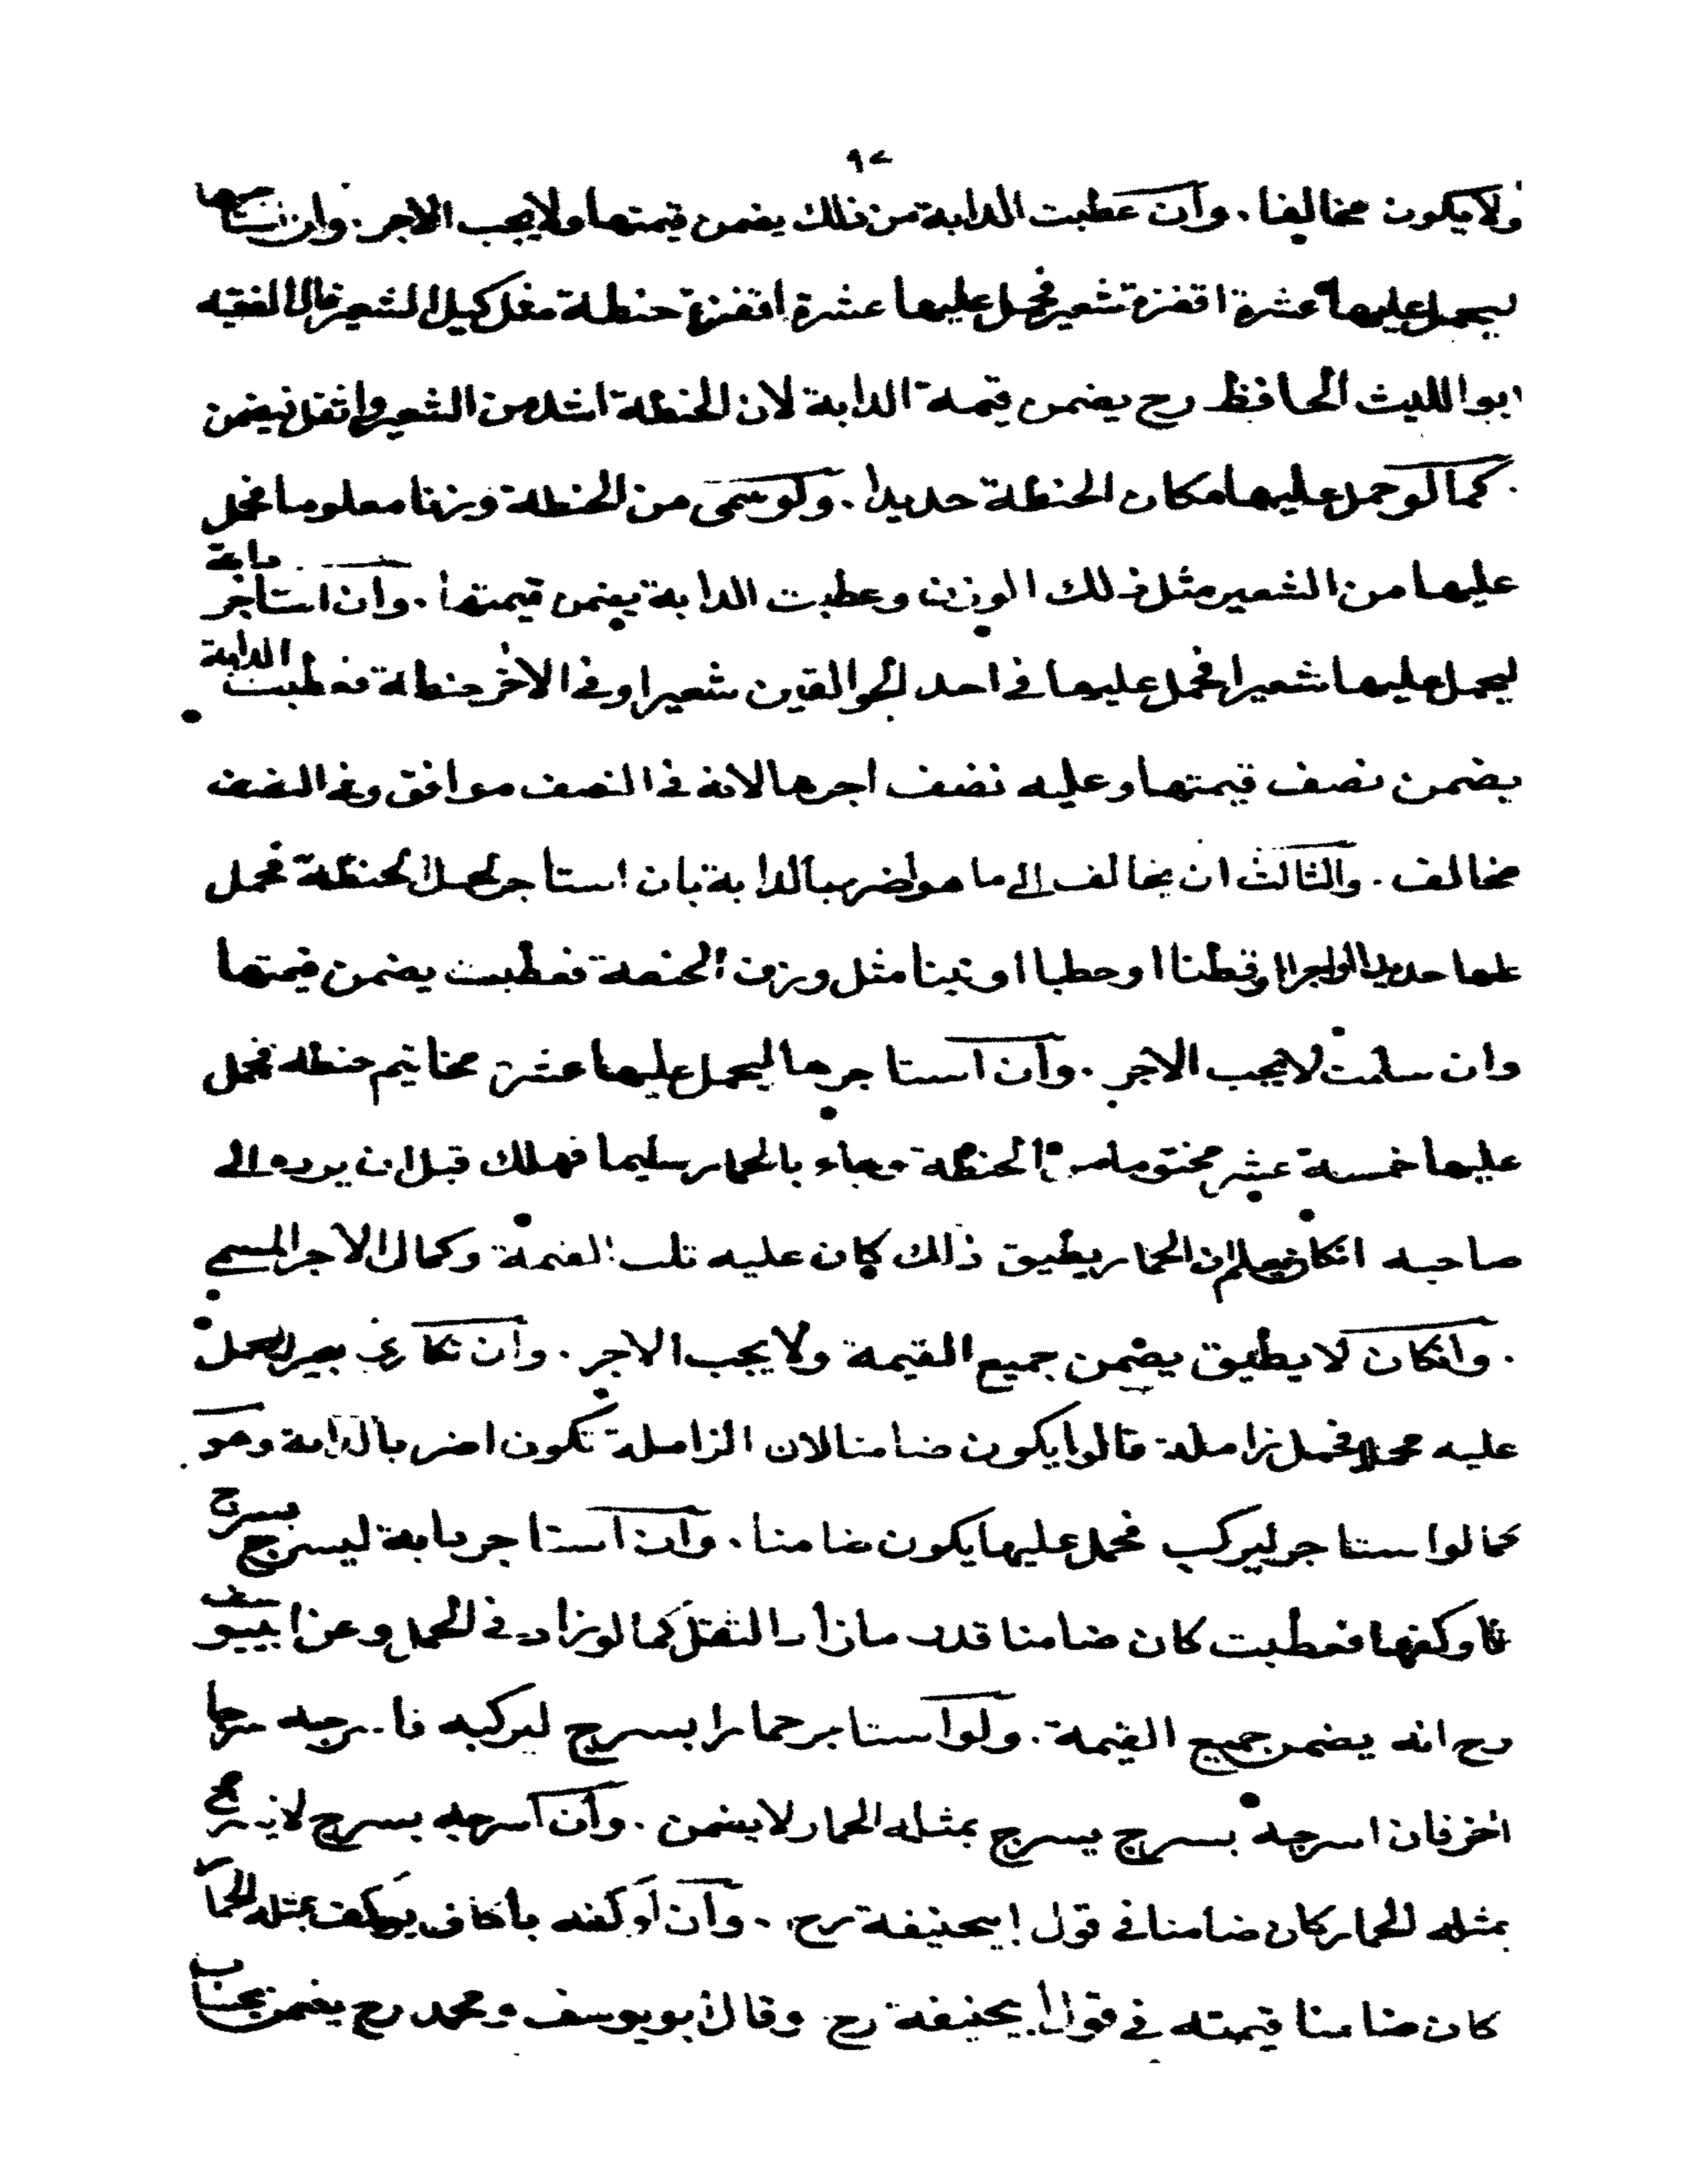 ٩٢
ولايكون مخالفا . وان عطبت الدابة من ذلك يضمن قيمتها ولايجب الاجر . وان استاجرها
ليحمل عليها عشرة اقفزة شعير فحمل عليها عشرة اقفزة حنطة مثل كيل الشعير قال الفقيه
ابو الليث الحافظ رح يضمن قيمة الدابة لان الحنطة اشد من الشعير واثقل فيضمن
كما لو حمل عليها مكان الحنطة حديدا . ولو سمى من الحنطة وزنا معلوما فحمل
عليها من الشعير مثل ذلك الوزن وعطبت الدابة يضمن قيمتها . وان استاجر دابة
ليحمل عليها شعيرا فحمل عليها في احد الجوالقين شعيرا وفي الاخر حنطة فعطبت الدابة
يضمن نصف قيمتها وعليه نصف اجرها لانه في النصف موافق وفي النصف
مخالف . والثالث ان يخالف الى ما هو اضر بالدابة بان استاجر لحمل الحنطة فحمل
عليها حديدا او اجرا او قطنا او حطبا او تبنا مثل وزن الحنطة فعطبت يضمن قيمتها
وان سلمت لايجب الاجر . وان استاجرها ليحمل عليها عشرة مخاتيم حنطة فحمل
عليها خمسة عشر مختوما من الحنطة وجاء بالحمار سليما فهلك قبل ان يرده الى
صاحبه انكان يعلم ان الحمار يطيق ذلك كان عليه ثلث القيمة وكمال الاجر المسمى
. وانكان لا يطيق يضمن جميع القيمة ولا يجب الاجر . وان تكارى بعيرا ليحمل
عليه محملا فحمل زاملة قالوا يكون ضامنا لان الزاملة تكون اضر بالدابة وهو
كما لو استاجر ليركب فحمل عليها يكون ضامنا . وان استاجر دابة ليسرج بسرج
فاوكفها فعطبت كان ضامنا قدر ما زاد الثقل كما لو زاد في الحمل وعن ابييوسف
رح انه يضمن جميع القيمة . ولو استاجر حمارا بسرج ليركبه فاسرجه سرجا
اخر فان اسرجه بسرج يسرج بمثله الحمار لا يضمن . وان اسرجه بسرج لا يسرج
بمثله الحمار كان ضامنا في قول ابيحنيفة رح . وان اوكفه باكاف يوكف بمثله الحمار
كان ضامنا قيمته في قول ابيحنيفة رح وقال ابو يوسف ومحمد رح يضمن بحساب